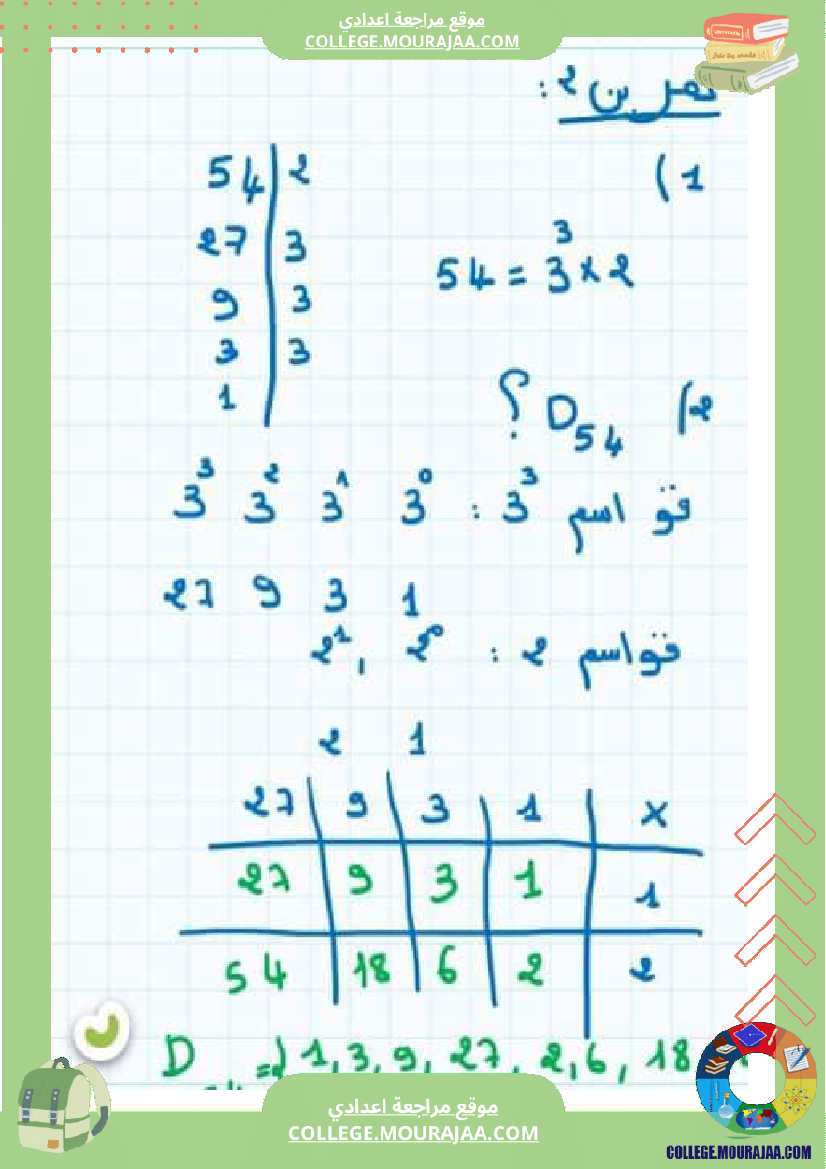 موقع مراجعة اعدادي
COLLEGE.MOURAJAA.COM
تمرين 2 :
1)
54 | 2
27 | 3
9 | 3
3 | 3
1 |
54 = 3³ × 2
2) D₅₄ ؟
قواسم 3³ : 3⁰ 3¹ 3² 3³
1 3 9 27
قواسم 2 : 2⁰ , 2¹
1 2
× | 1 | 3 | 9 | 27
1 | 1 | 3 | 9 | 27
2 | 2 | 6 | 18 | 54
D₅₄ = { 1, 3, 9, 27, 2, 6, 18
موقع مراجعة اعدادي
COLLEGE.MOURAJAA.COM
COLLEGE.MOURAJAA.COM